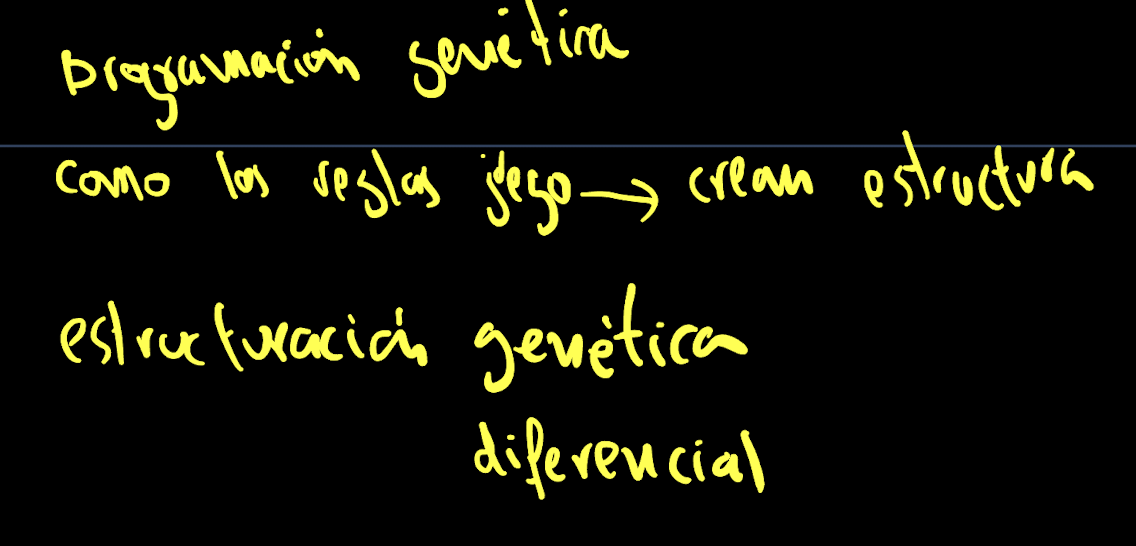 Programación genética
como las reglas juego → crean estructura
estructuración genética
diferencial